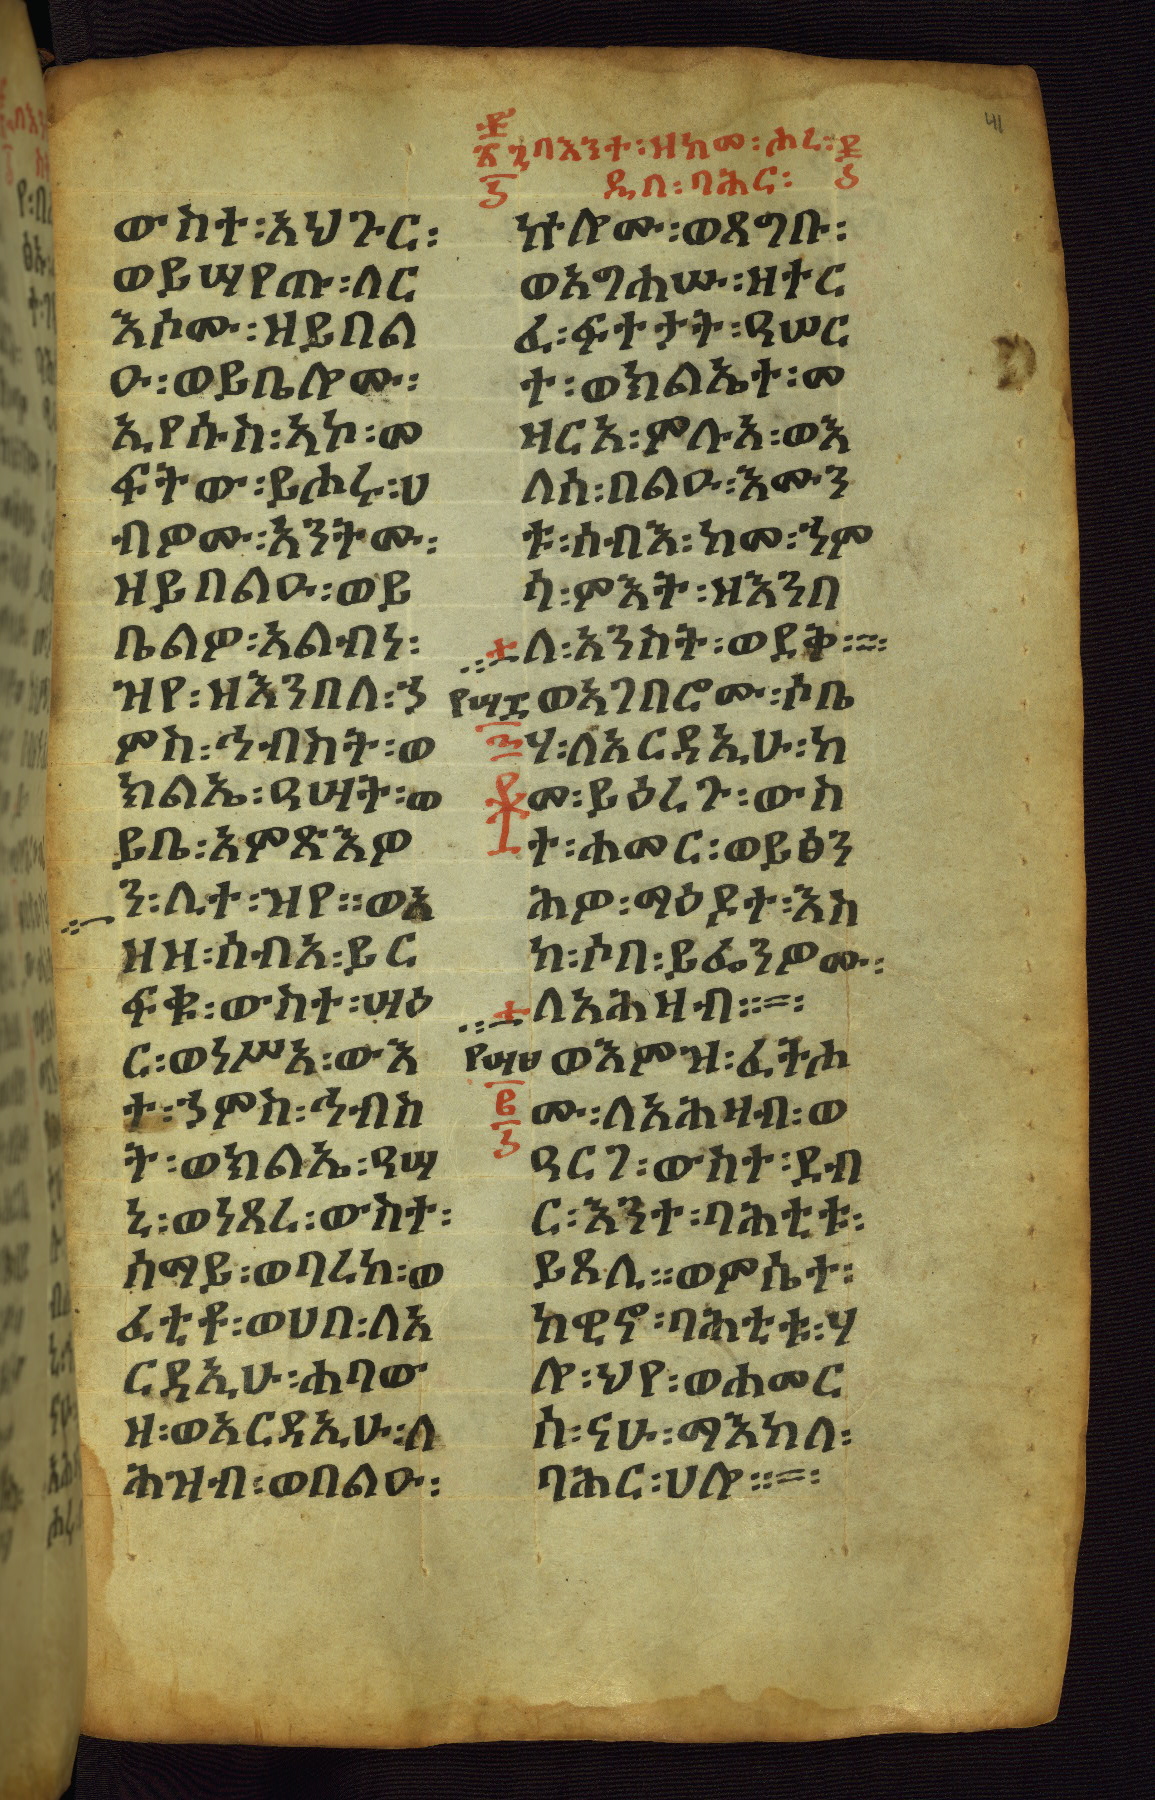 በእንተ፡ዘከመ፡ሖረ፡
ዲበ፡ባሕር፡
ውስተ፡አህጉር፡
ወይሣየጡ፡ለር
እሶሙ፡ዘይበል
ዑ፡ወይቤሎሙ፡
ኢየሱስ፡አኮ፡መ
ፍትው፡ይሖሩ፡ሀ
ብዎሙ፡አንትሙ፡
ዘይበልዑ፡ወይ
ቤልዎ፡አልብነ፡
ዝየ፡ዘእንበለ፡ኃ
ምስ፡ኅብስት፡ወ
ክልኤ፡ዓሣት፡ወ
ይቤ፡አምጽእዎ
ን፡ሊተ፡ዝየ፡፡ወአ
ዘዘ፡ሰብአ፡ይር
ፍቁ፡ውስተ፡ሣዕ
ር፡ወነሥአ፡ውእ
ተ፡ኃምስ፡ኅብስ
ት፡ወክልኤ፡ዓሣ
ኒ፡ወነጸረ፡ውስተ፡
ሰማይ፡ወባረከ፡ወ
ፈቲቶ፡ወሀበ፡ለአ
ርዳኢሁ፡ሐባው
ዘ፡ወአርዳኢሁ፡ለ
ሕዝብ፡ወበልዑ፡
ኵሎሙ፡ወጸግቡ፡
ወአግሐሡ፡ዘተር
ፈ፡ፍተታት፡ዓሠር
ተ፡ወክልኤተ፡መ
ዛርአ፡ምሉአ፡ወእ
ለሰ፡በልዑ፡እሙን
ቱ፡ሰብእ፡ከመ፡ኃም
ሳ፡ምእት፡ዘእንበ
ለ፡አንስት፡ወደቅ፡፡
የሣ፯ ወአገበሮሙ፡ሶቤ
ሃ፡ለአርዳኢሁ፡ከ
መ፡ይዕረጉ፡ውስ
ተ፡ሐመር፡ወይፅን
ሕዎ፡ማዕዶተ፡እስ
ከ፡ሶበ፡ይፌንዎሙ፡
ለአሕዛብ፡፡
የሣ፱ ወእምዝ፡ፈትሐ
ሙ፡ለአሕዛብ፡ወ
ዓርገ፡ውስተ፡ደብ
ር፡እንተ፡ባሕቲቱ፡
ይጸሊ፡፡ወምሴተ፡
ከዊኖ፡ባሕቲቱ፡ሃ
ሎ፡ህየ፡ወሐመር
ሰ፡ናሁ፡ማእከለ፡
ባሕር፡ሀሎ፡፡